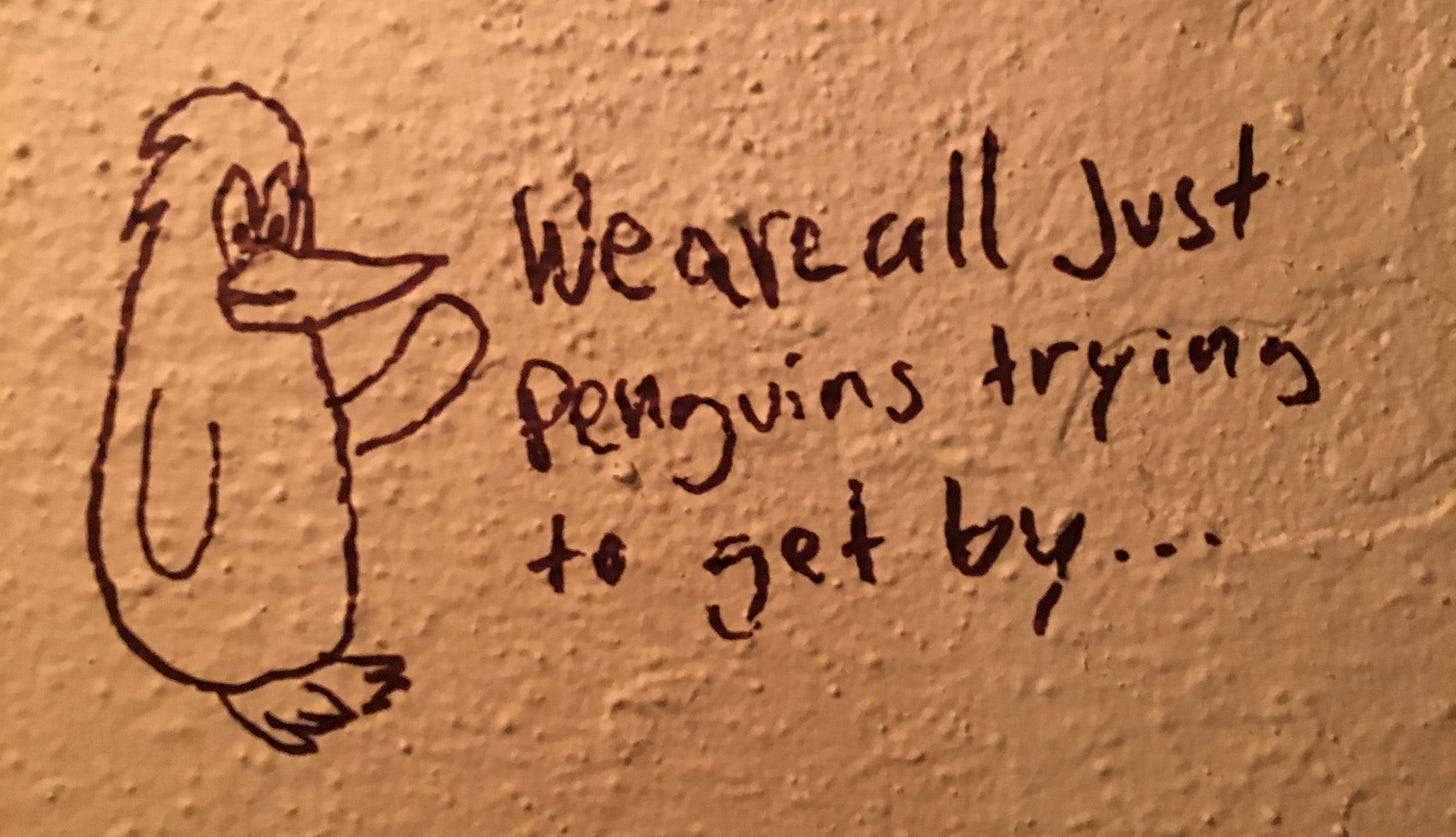 We are all Just
Penguins trying
to get by...